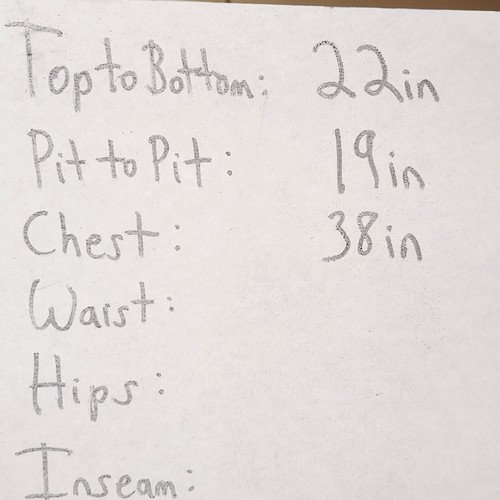 Top to Bottom: 22in
Pit to Pit: 19in
Chest: 38in
Waist:
Hips:
Inseam: